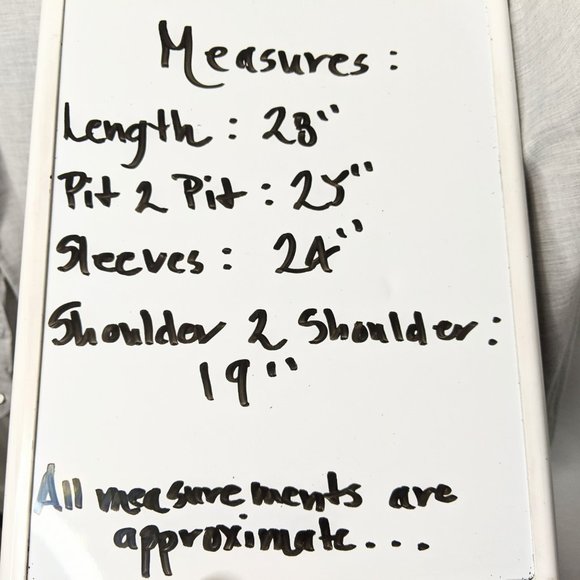 Measures:
Length: 28"
Pit 2 Pit: 25"
Sleeves: 24"
Shoulder 2 Shoulder:
19"
All measurements are
approximate...